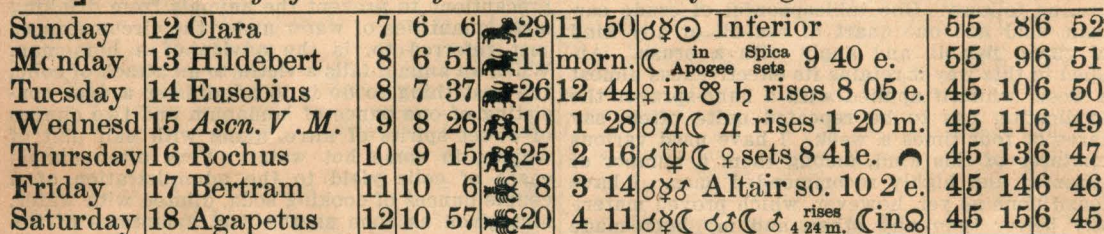 Sunday 12 Clara 7 6 6 29 11 50 ☌☿☉ Inferior 55 5 8 6 52
Monday 13 Hildebert 8 6 51 11 morn. ☾ in Apogee Spica sets 9 40 e. 55 5 9 6 51
Tuesday 14 Eusebius 8 7 37 26 12 44 ♀ in ☋ ♄ rises 8 05 e. 45 10 6 50
Wednesd 15 Ascn. V. M. 9 8 26 10 1 28 ☌♃☾ ♃ rises 1 20 m. 45 11 6 49
Thursday 16 Rochus 10 9 15 25 2 16 ☌♆☾ ♀ sets 8 41e. 45 13 6 47
Friday 17 Bertram 11 10 6 8 3 14 ☌☿♂ Altair so. 10 2 e. 45 14 6 46
Saturday 18 Agapetus 12 10 57 20 4 11 ☌☿☾ ☌♂☾ ♂ rises 4 24 m. ☾ in ☊ 45 15 6 45